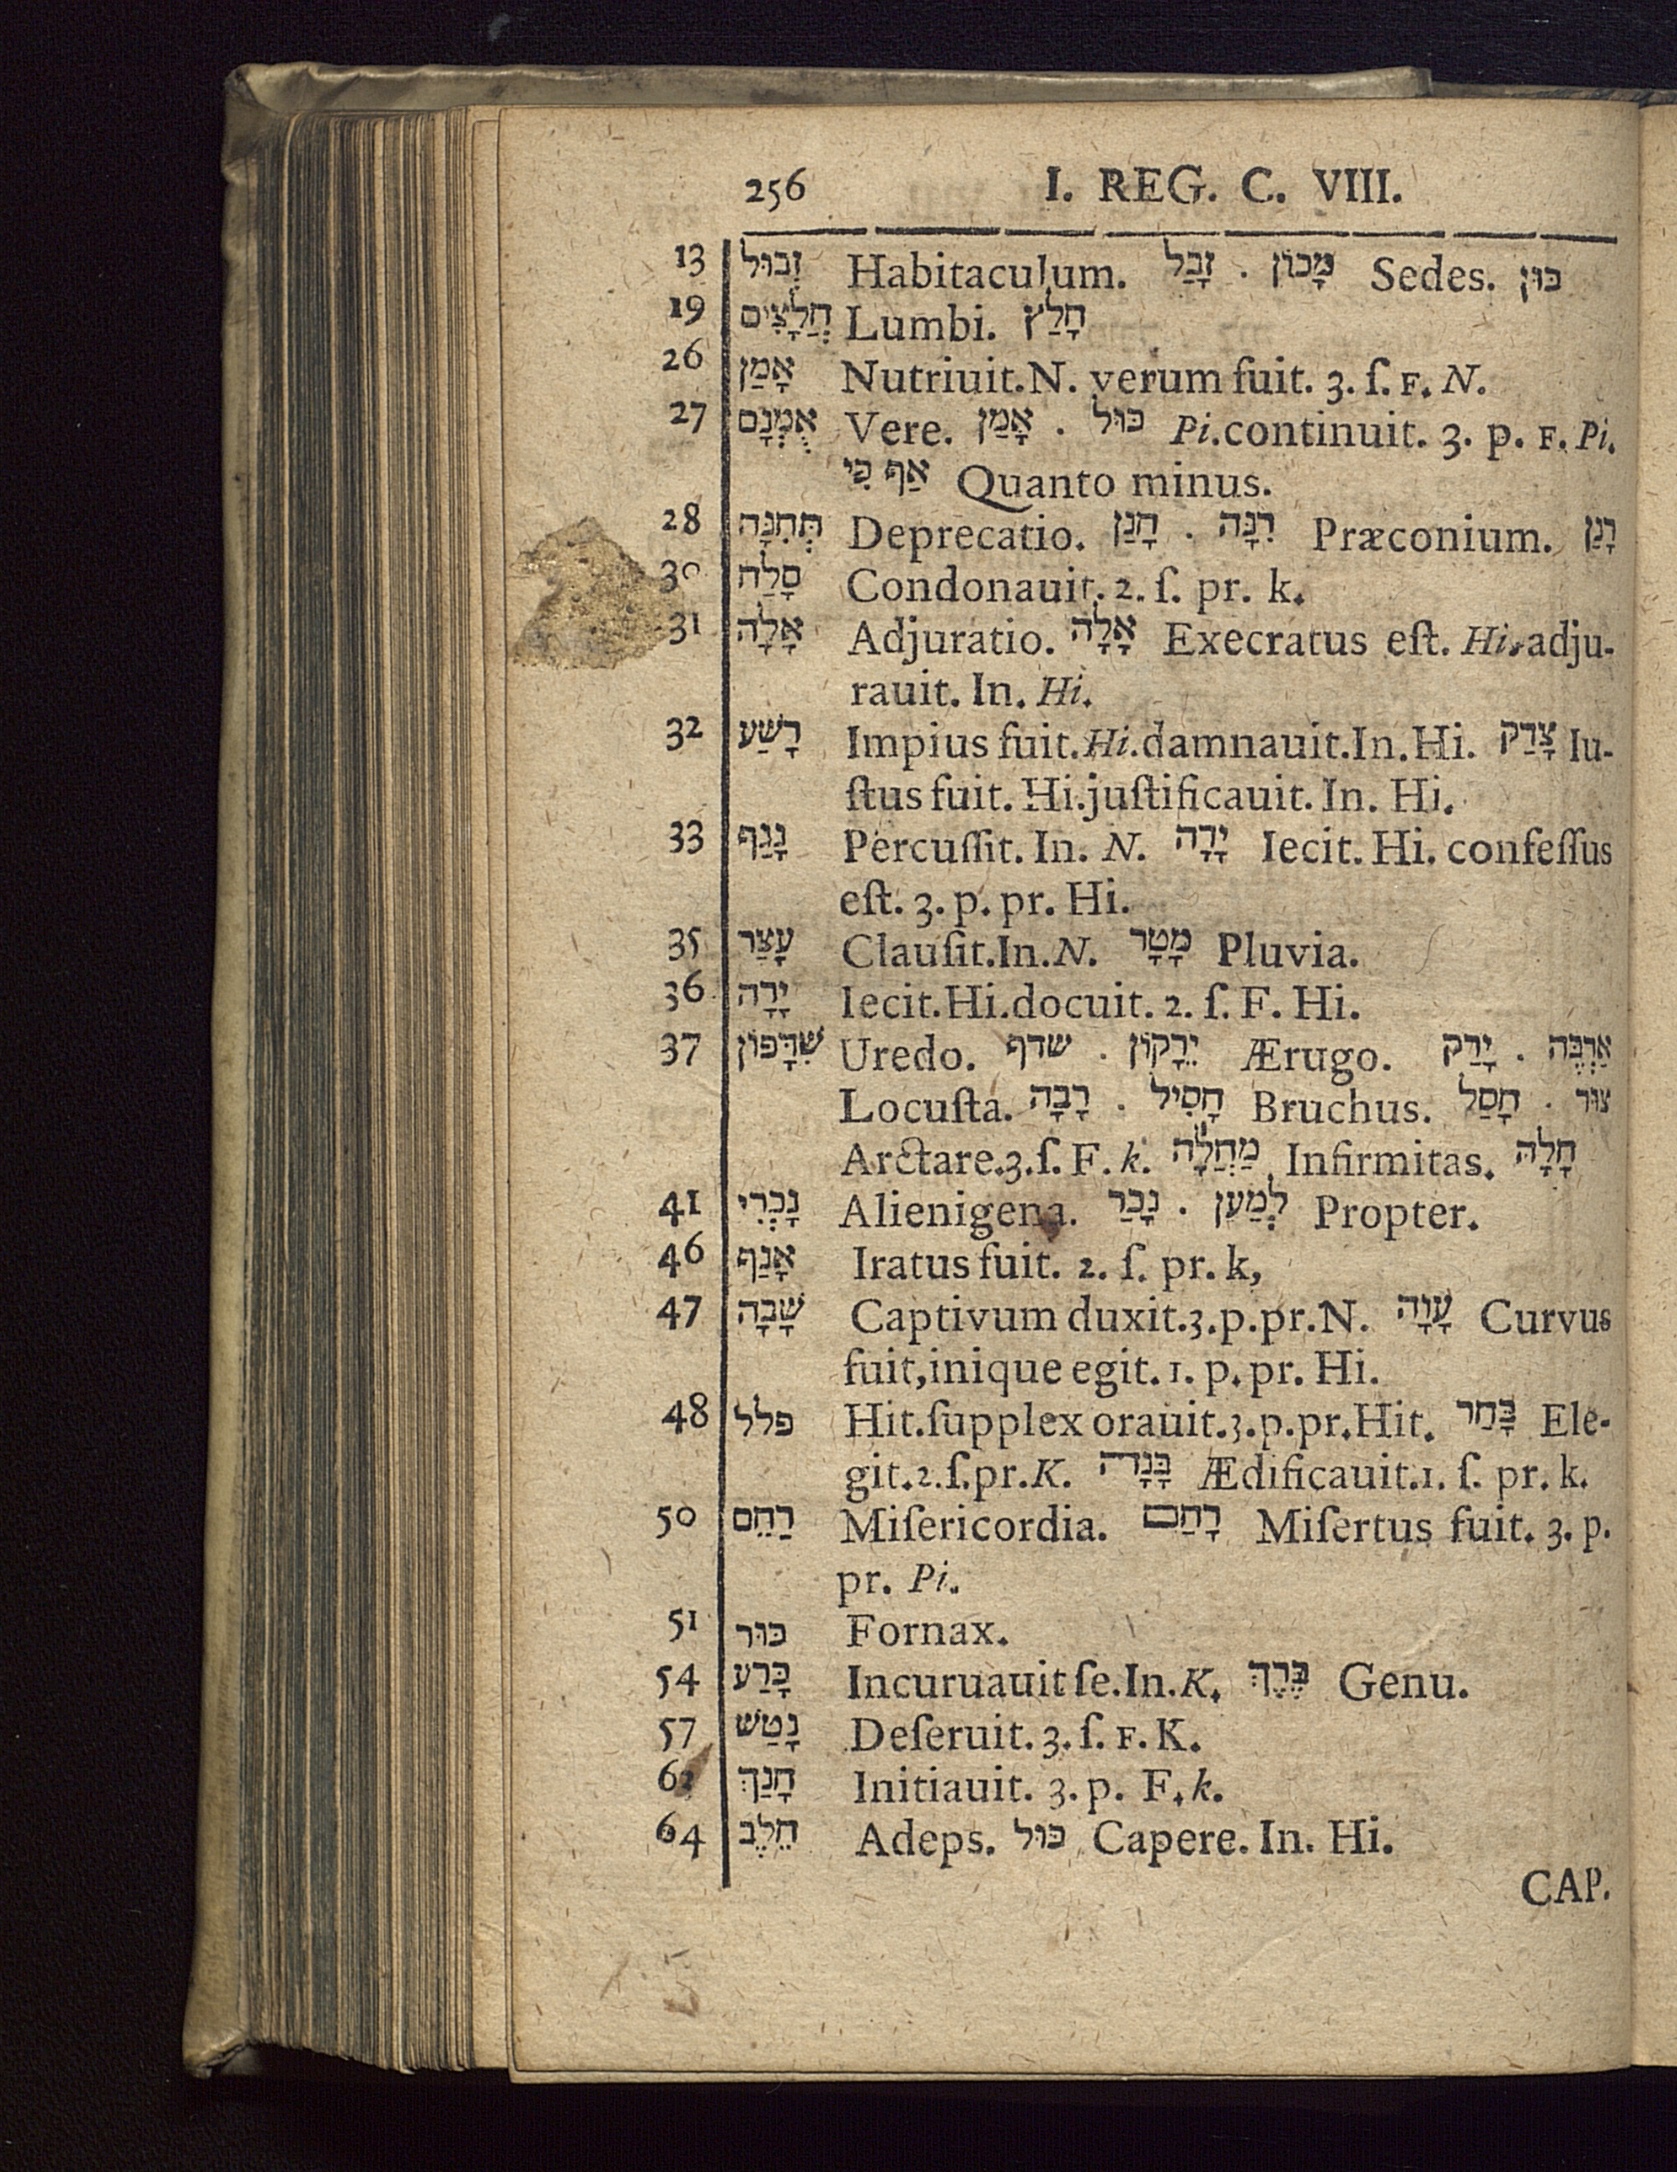 256 I. REG. C. VIII.
13 זְבוּל Habitaculum. זָבַל . מָכוֹן Sedes. כּוּן
19 חֲלָצַיִם Lumbi. חָלַץ
26 אָמַן Nutriuit.N. verum fuit. 3. ſ. F. N.
27 אֻמְנָם Vere. אָמַן . כּוּל Pi.continuit. 3. p. F. Pi.
אַף כִּי Quanto minus.
28 תְּחִנָּה Deprecatio. חָנַן . רִנָּה Præconium. רָנַן
30 סָלַח Condonauit. 2. ſ. pr. k.
31 אָלָה Adjuratio. אָלָה Execratus eſt. Hi. adju-
rauit. In. Hi.
32 רָשַׁע Impius fuit.Hi.damnauit.In.Hi. צָדַק Iu-
ſtus fuit. Hi.juſtificauit. In. Hi.
33 נָגַף Percuſſit. In. N. יָדָה Iecit. Hi. confeſſus
eſt. 3. p. pr. Hi.
35 עָצַר Clauſit.In.N. מָטָר Pluvia.
36 יָרָה Iecit.Hi.docuit. 2. ſ. F. Hi.
37 שִׁדָּפוֹן Uredo. שדף . יֵרָקוֹן Ærugo. יָרַק . אַרְבֶּה
Locuſta. רָבָה . חָסִיל Bruchus. חָסַל . צוּר
Arctare.3.ſ. F. k. מַחֲלָה Infirmitas. חָלָה
41 נָכְרִי Alienigena. נָכַר . לְמַעַן Propter.
46 אָנַף Iratus fuit. 2. ſ. pr. k,
47 שָׁבָה Captivum duxit.3.p.pr.N. עָוָה Curvus
fuit,inique egit. 1. p. pr. Hi.
48 פלל Hit.ſupplex orauit.3.p.pr.Hit. בָּחַר Ele-
git.2.ſ.pr.K. בָּנָה Ædificauit.1. ſ. pr. k.
50 רַחֵם Miſericordia. רָחַם Miſertus fuit. 3. p.
pr. Pi.
51 כּוּר Fornax.
54 כָּרַע Incuruauit ſe.In.K. בֶּרֶךְ Genu.
57 נָטַשׁ Deſeruit. 3. ſ. F. K.
חָנַךְ Initiauit. 3. p. F. k.
64 חֵלֶב Adeps. כּוּל Capere. In. Hi.
CAP.